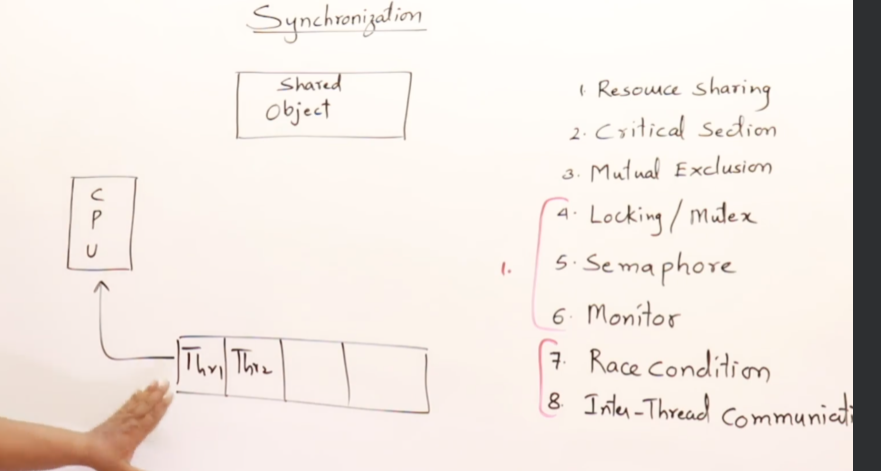 Synchronization
Shared
Object
C
P
U
Thr1 Thr2
1. Resource Sharing
2. Critical Section
3. Mutual Exclusion
4. Locking / Mutex
5. Semaphore
6. Monitor
1.
7. Race Condition
8. Inter-Thread Communicati